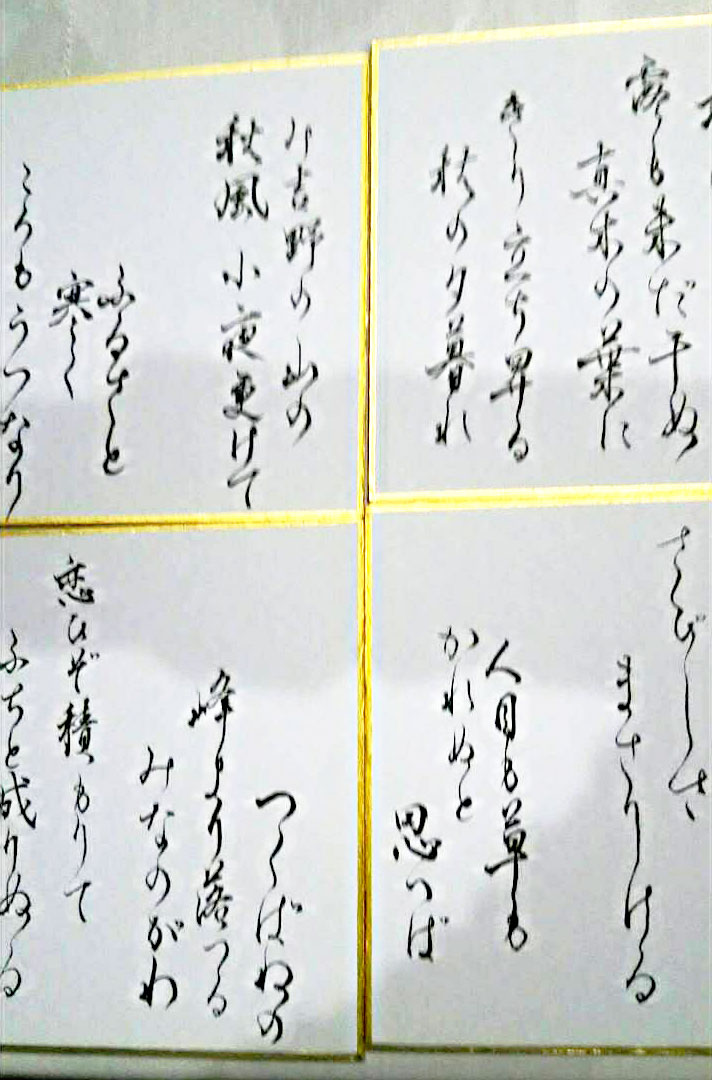 露も未だ干ぬ
真木の葉に
きり立ち昇る
秋の夕暮れ
み吉野の山の
秋風小夜更けて
ふるさと
寒く
ころもうつなり
さびしさ
まさりける
人目も草も
かれぬと
思へば
つくばねの
峰より落つる
みなのがわ
恋ひぞ積もりて
ふちと成りぬる